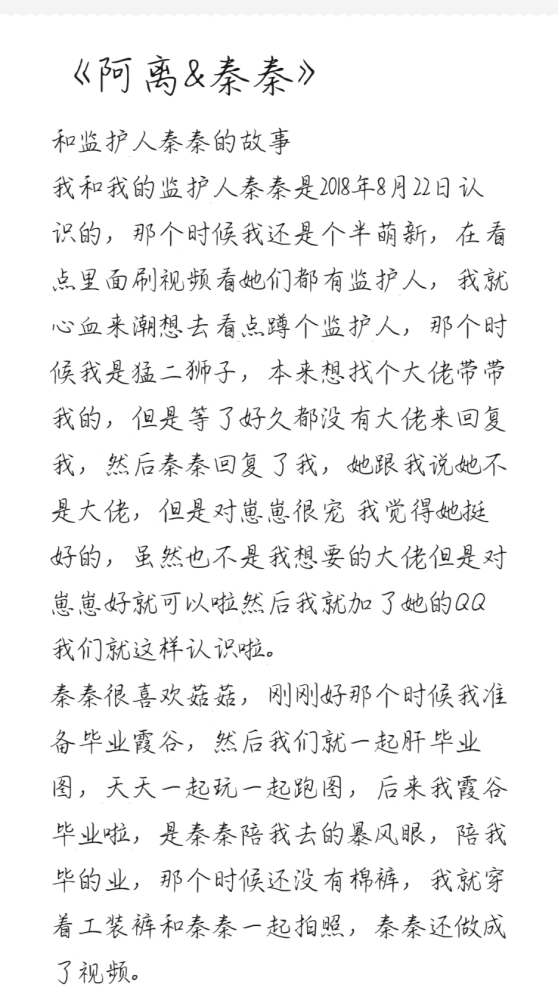 《阿离&秦秦》
和监护人秦秦的故事
我和我的监护人秦秦是2018年8月22日认
识的，那个时候我还是个半萌新，在看
点里面刷视频看她们都有监护人，我就
心血来潮想去看点蹲个监护人，那个时
候我是猛二狮子，本来想找个大佬带带
我的，但是等了好久都没有大佬来回复
我，然后秦秦回复了我，她跟我说她不
是大佬，但是对崽崽很宠 我觉得她挺
好的，虽然也不是我想要的大佬但是对
崽崽好就可以啦然后我就加了她的QQ
我们就这样认识啦。
秦秦很喜欢菇菇，刚刚好那个时候我准
备毕业霞谷，然后我们就一起肝毕业
图，天天一起玩一起跑图，后来我霞谷
毕业啦，是秦秦陪我去的暴风眼，陪我
毕的业，那个时候还没有棉裤，我就穿
着工装裤和秦秦一起拍照，秦秦还做成
了视频。